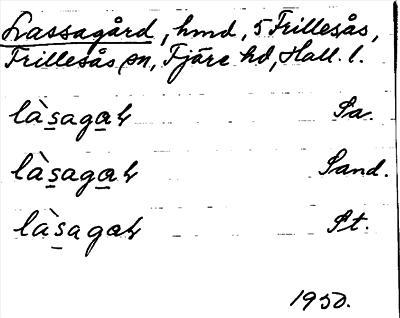 Lassagård, hmd, 5 Frillesås,
Frillesås sn, Fjäre hd, Hall. l.
là̱sag̱a̱ɫ Sa.
là̱saga̱ɫ Sand.
là̱sagaɫ St.
1950.